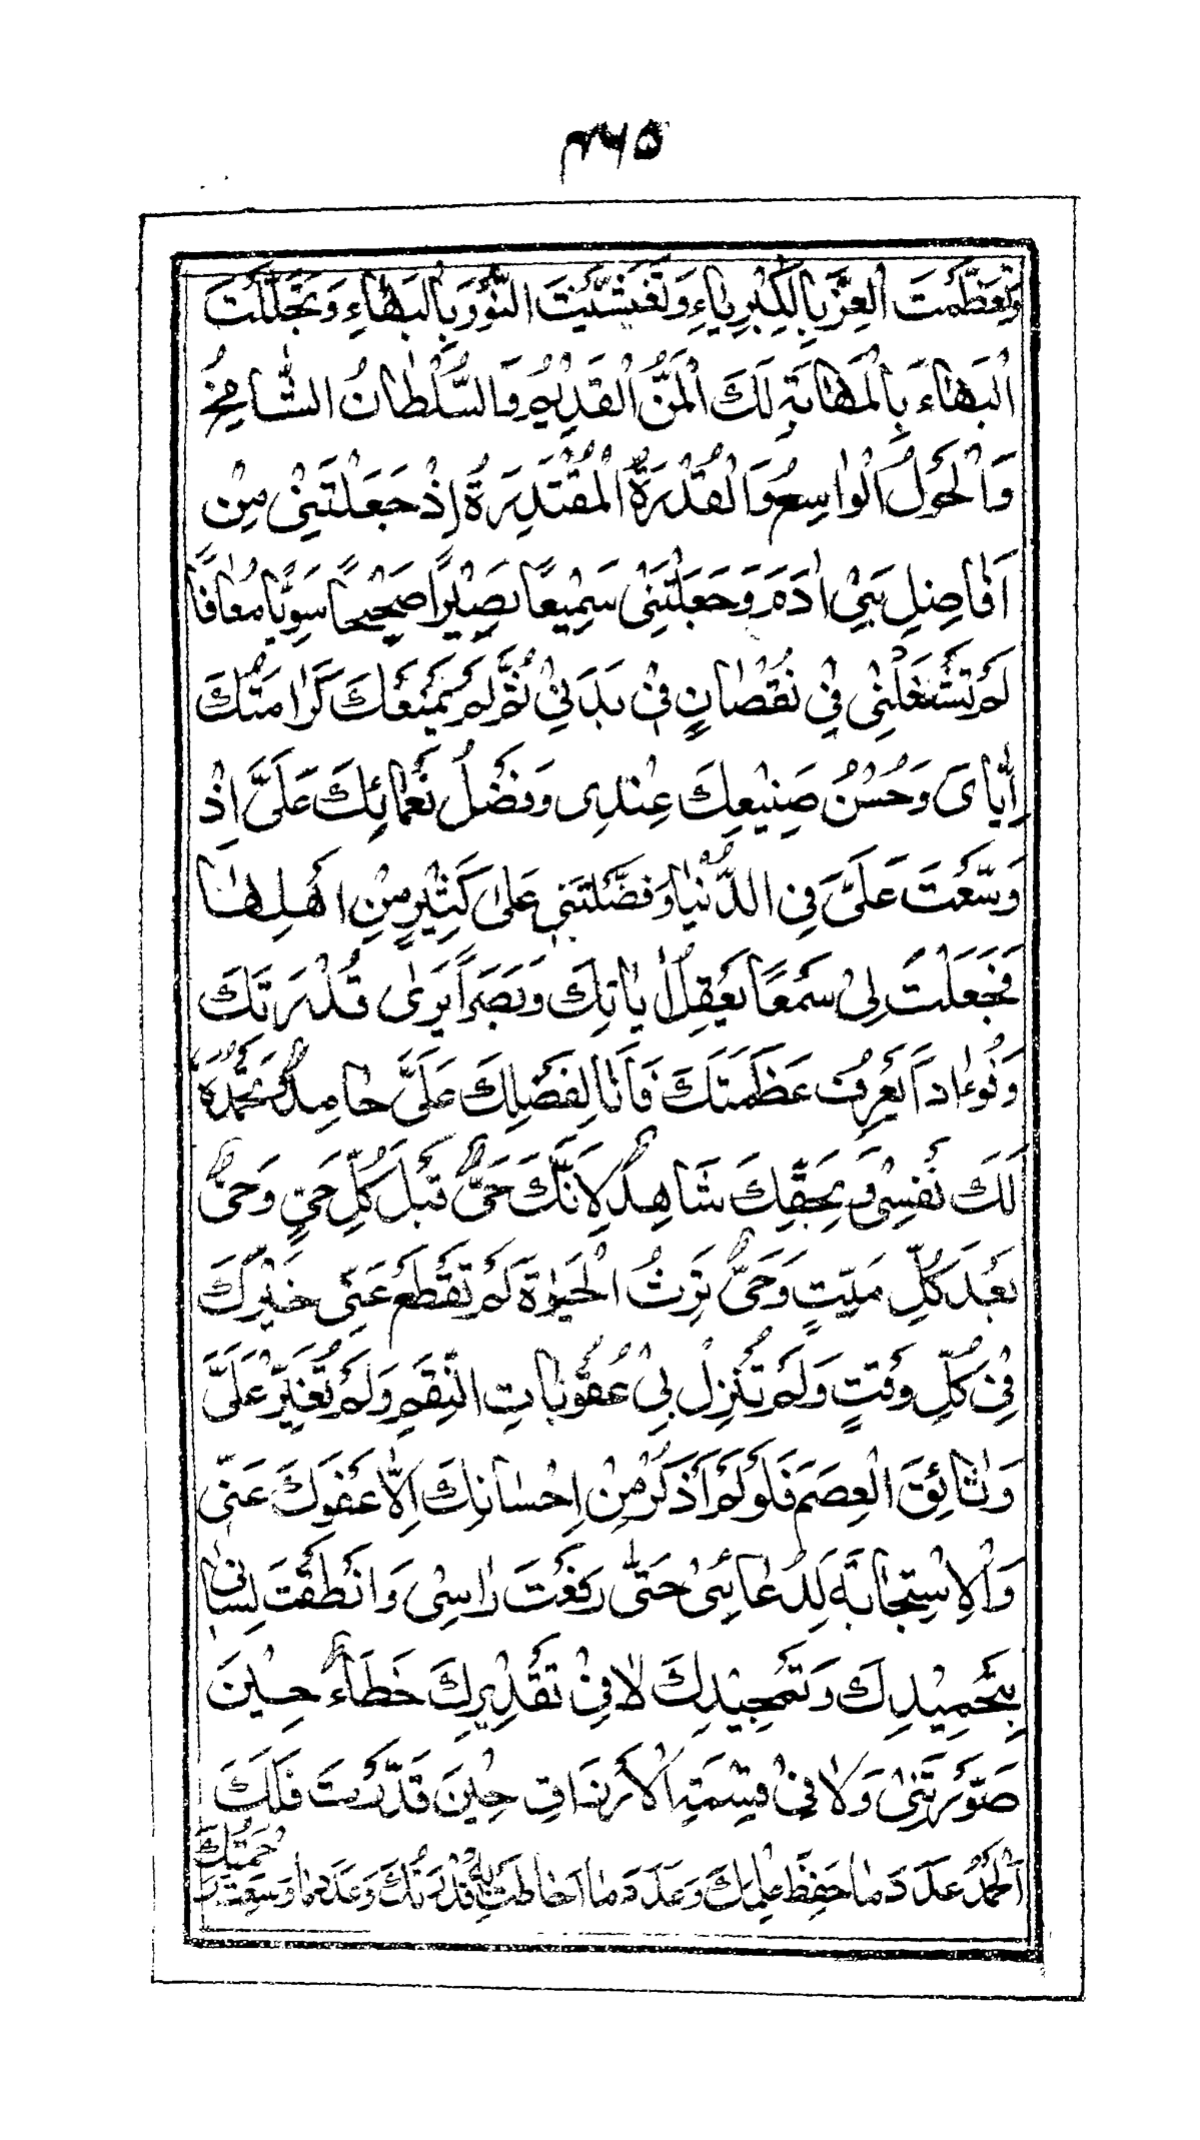 ۴۶۵
وَتَعَظَّمْتَ الْعِزَّ بِالْكِبْرِيَاءِ وَتَغَشَّيْتَ النُّوْرَ بِالْبَهَاءِ وَتَجَلَّلْتَ
الْبَهَاءَ بِالْمَهَابَةِ لَكَ الْمَنُّ الْقَدِيْمُ وَالسُّلْطَانُ الشَّامِخُ
وَالْحَوْلُ الْوَاسِعُ وَالْقُدْرَةُ الْمُقْتَدِرَةُ اِذْ جَعَلْتَنِيْ مِنْ
اَفَاضِلِ بَنِيْ اٰدَمَ وَجَعَلْتَنِيْ سَمِيْعًا بَصِيْرًا صَحِيْحًا سَوِيًّا مُعَافًا
لَمْ تَشْغَلْنِيْ فِيْ نُقْصَانٍ فِيْ بَدَنِيْ ثُمَّ لَمْ يَمْنَعْكَ كَرَامَتُكَ
اِيَّايَ وَحُسْنُ صَنِيْعِكَ عِنْدِيْ وَفَضْلُ نَعْمَائِكَ عَلَيَّ اِذْ
وَسَّعْتَ عَلَيَّ فِي الدُّنْيَا وَفَضَّلْتَنِيْ عَلٰى كَثِيْرٍ مِنْ اَهْلِهَا
فَجَعَلْتَ لِيْ سَمْعًا يَعْقِلُ اٰيَاتِكَ وَبَصَرًا يَرٰى قُدْرَتَكَ
وَفُوءَادًا يَعْرِفُ عَظَمَتَكَ فَاَنَا لِفَضْلِكَ عَلَيَّ حَامِدٌ وَتَحْمَدُهُ
لَكَ نَفْسِيْ وَبِحَقِّكَ شَاهِدٌ لِاَنَّكَ حَيٌّ قَبْلَ كُلِّ حَيٍّ وَحَيٌّ
بَعْدَ كُلِّ مَيِّتٍ وَحَيٌّ تَرِثُ الْحَيٰوةَ لَمْ تَقْطَعْ عَنِّيْ خَيْرَكَ
فِيْ كُلِّ وَقْتٍ وَلَمْ تُنْزِلْ بِيْ عُقُوْبَاتِ النِّقَمِ وَلَمْ تُغَيِّرْ عَلَيَّ
وَثَائِقَ الْعِصَمِ فَلَوْ لَمْ اَذْكُرْ مِنْ اِحْسَانِكَ اِلَّا عَفْوَكَ عَنِّيْ
وَالْاِسْتِجَابَةَ لِدُعَائِيْ حَتّٰى رَفَعْتَ رَاسِيْ وَانْطَقْتَ لِسَانِيْ
بِتَحْمِيْدِكَ وَتَمْجِيْدِكَ لَا فِيْ تَقْدِيْرِكَ خَطَاءٌ حِيْنَ
صَوَّرْتَنِيْ وَلَا فِيْ قِسْمَةِ الْاَرْزَاقِ حِيْنَ قَدَّرْتَ فَلَكَ
الْحَمْدُ عَدَدَ مَا حَفِظَ عِلْمُكَ وَعَدَدَ مَا اَحَاطَتْ بِهٖ قُدْرَتُكَ وَعَدَدَ مَا وَسِعَتْ رَحْمَتُكَ